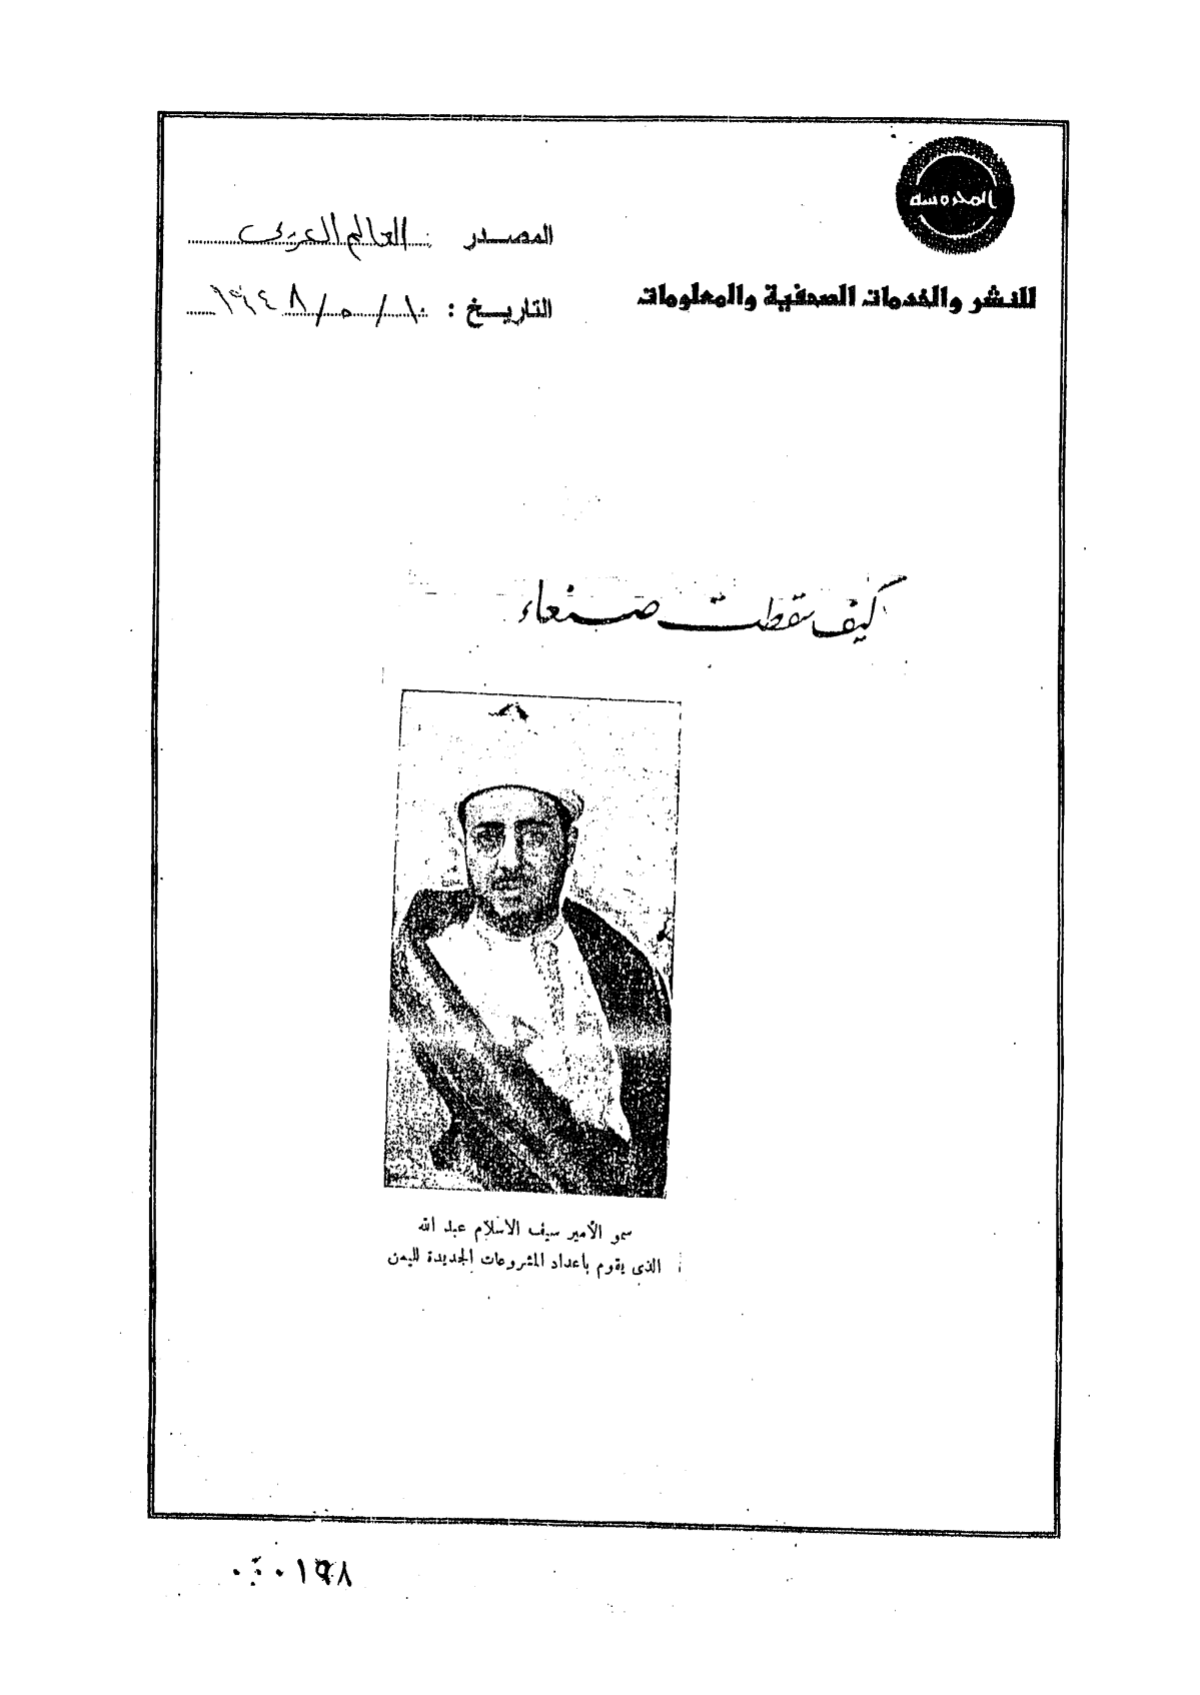 المحروسة
للنشر والخدمات الصحفية والمعلومات
المصدر : العالم العربى
التاريخ : ١٠/٥/١٩٤٨
كيف سقطت صنعاء
سمو الأمير سيف الاسلام عبد الله
الذى يقوم بأعداد المشروعات الجديدة لليمن